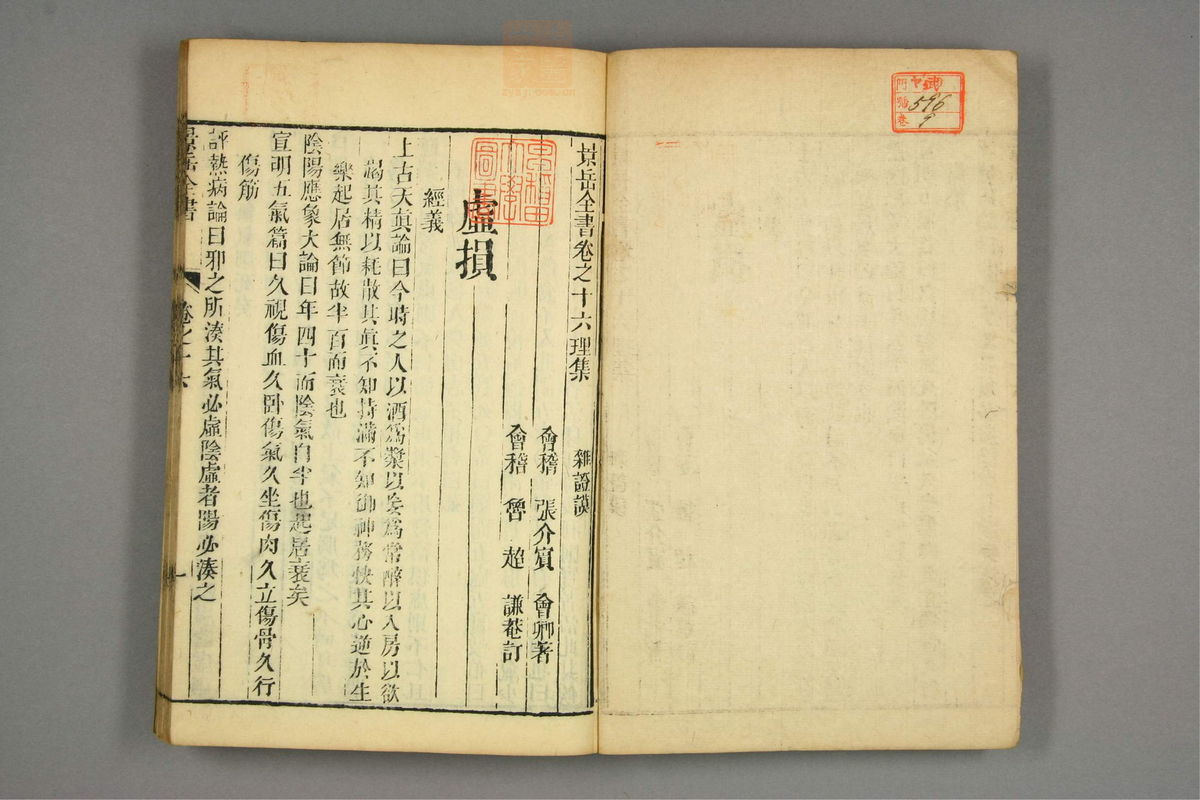 景岳全書卷之十六理集 雜證謨
會稽 張介賓 會卿著
會稽 魯超 謙菴訂
虛損
經義
上古天眞論曰今時之人以酒爲漿以妄爲常醉以入房以欲
竭其精以耗散其眞不知持滿不知御神務快其心逆於生
樂起居無節故半百而衰也
陰陽應象大論曰年四十而陰氣自半也起居衰矣
宣明五氣篇曰久視傷血久卧傷氣久坐傷肉久立傷骨久行
傷筋
評熱病論曰邪之所湊其氣必虛陰虛者陽必湊之
景岳全書 卷之十六 一
早稻田大學圖書
門
號 596
卷 9